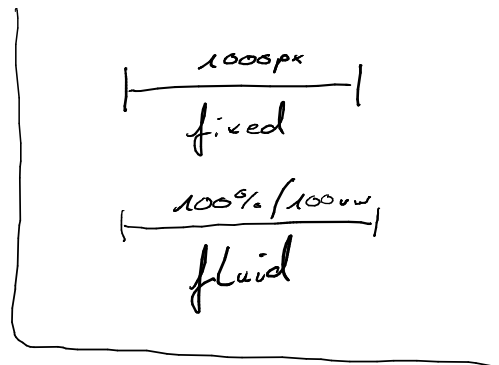 1000px
fixed
100%/100vw
fluid